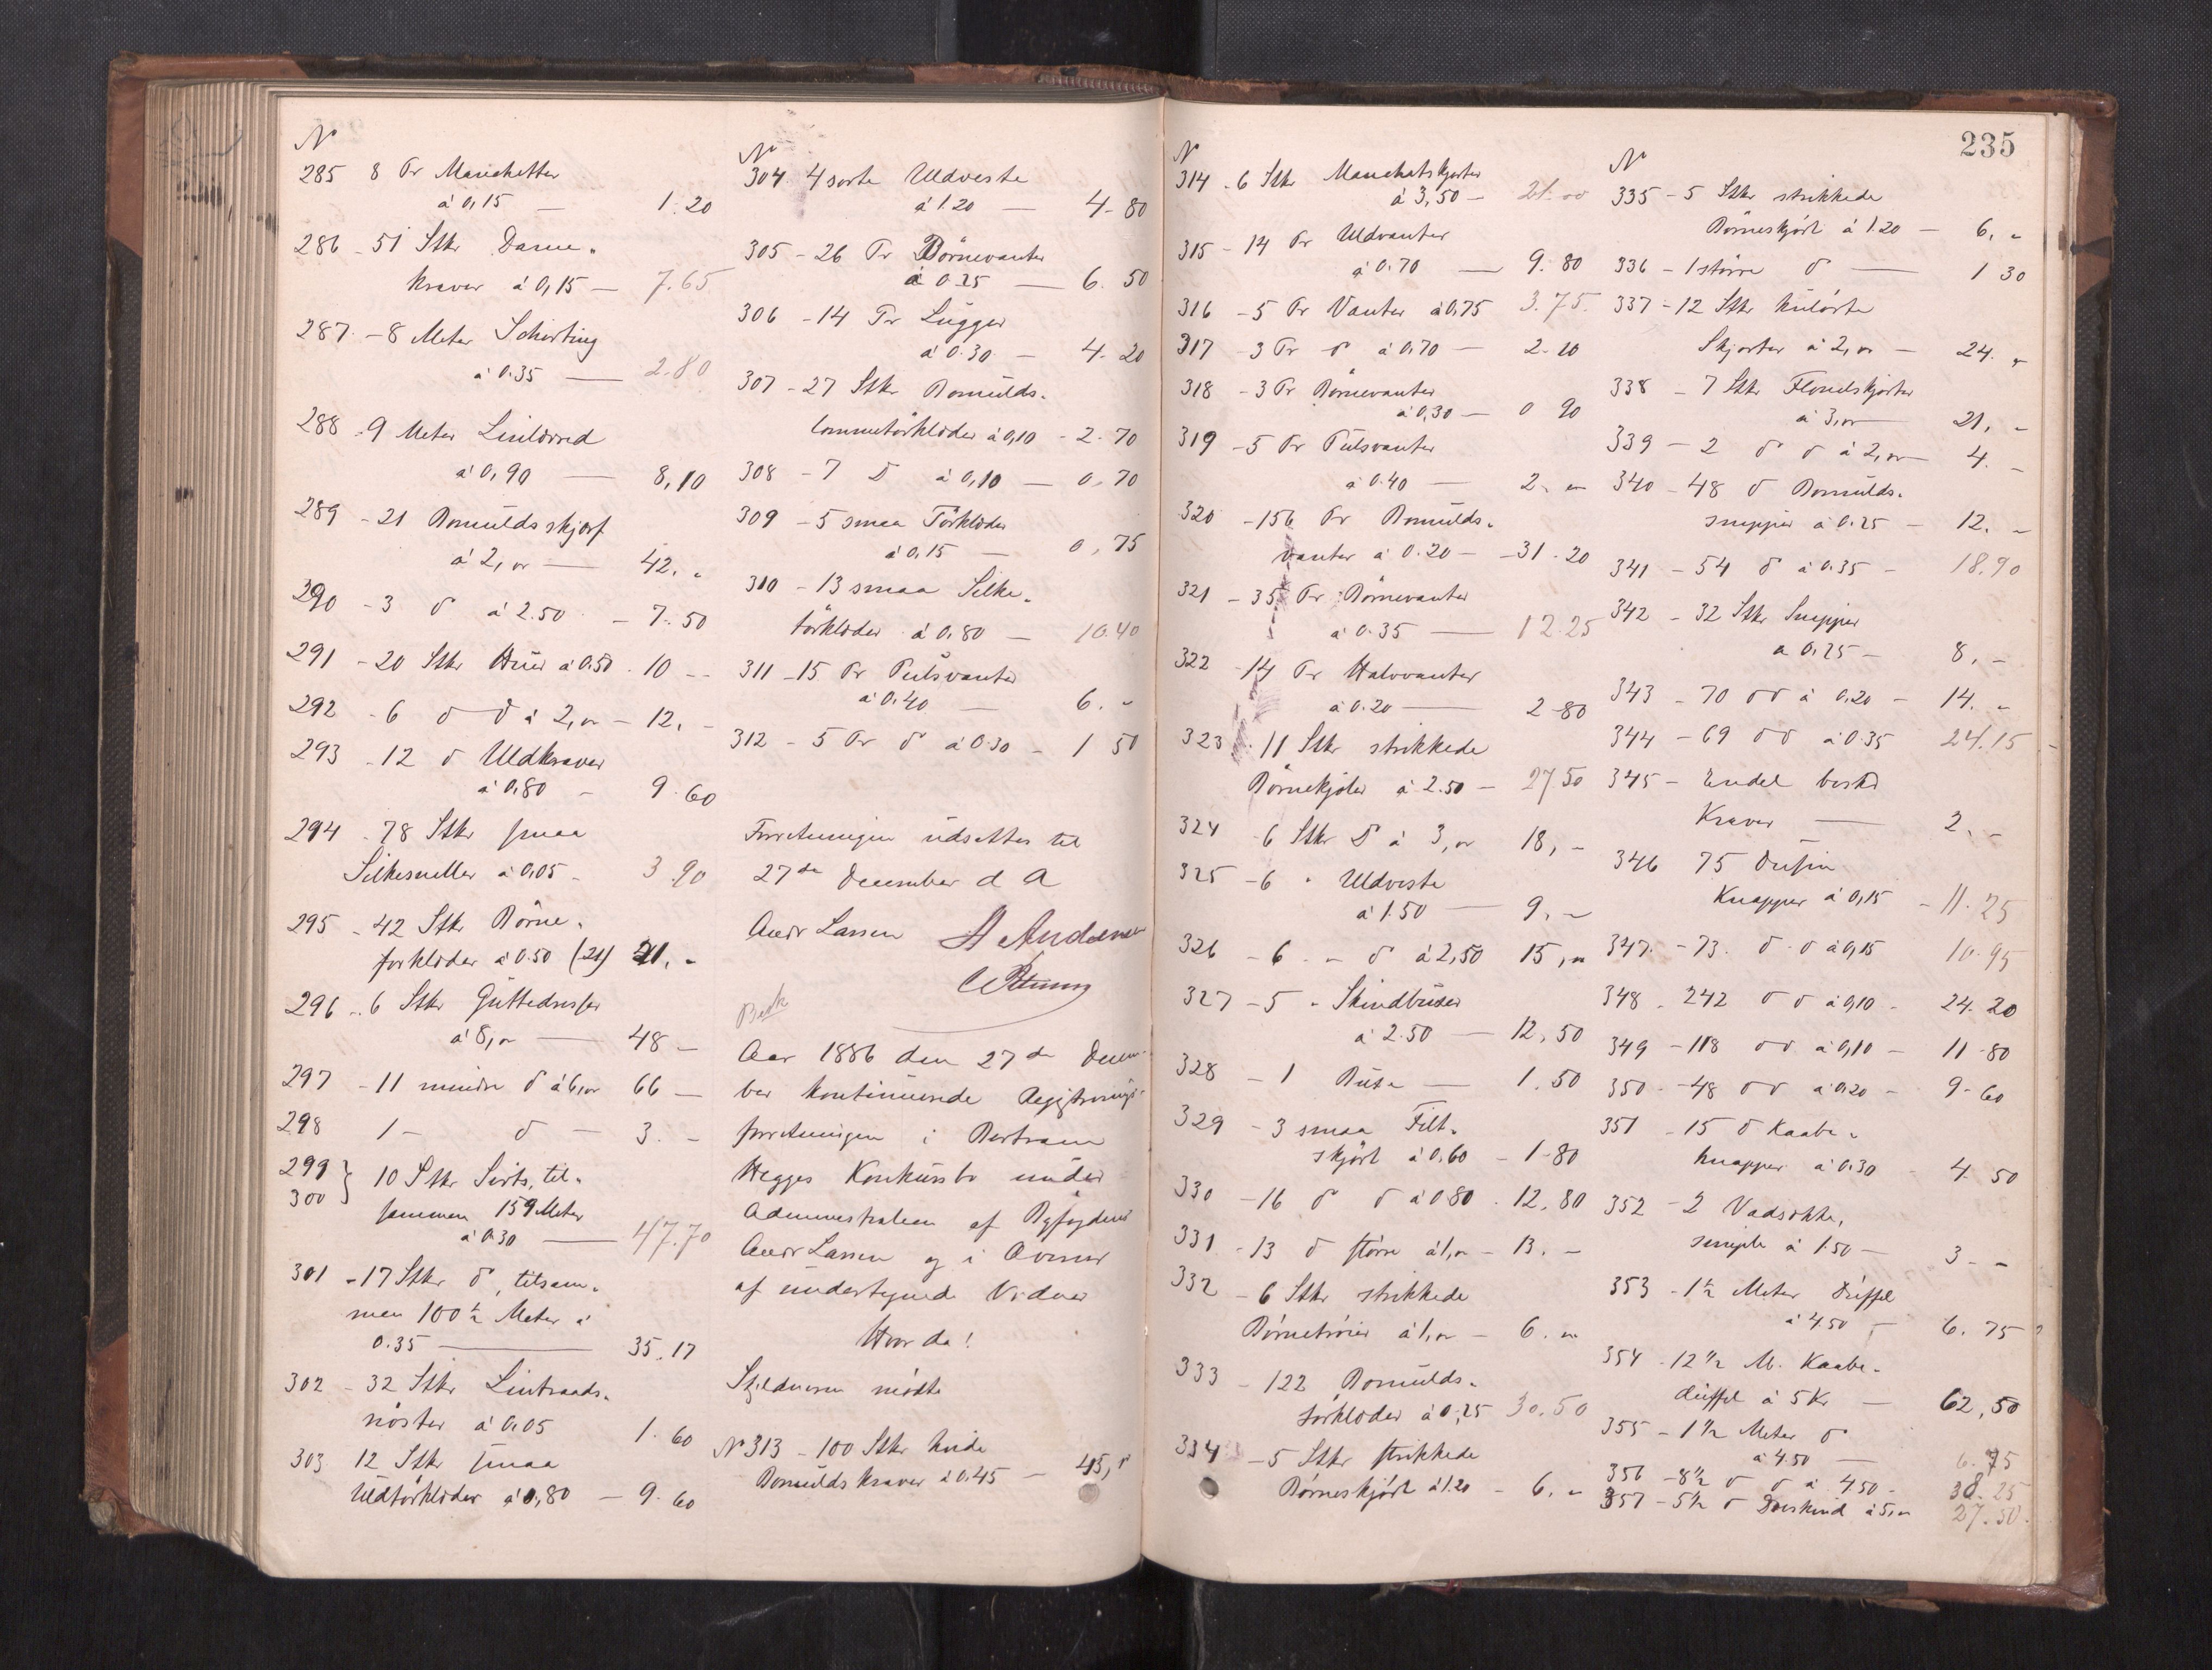 N
285 8 Pr Manchetter
à 0,15 — 1.20
286 - 51 Stkr Dame-
kraver à 0,15 — 7.65
287 - 8 Meter Schirting
à 0.35 — 2.80
288 - 9 Meter Linlærred
à 0,90 — 8,10
289 - 21 Bomuldsskjørt
à 2,00 — 42. -
290 - 3 d à 2.50 - 7.50
291 - 20 Stkr Huer à 0.50 - 10 --
292 - 6 d d à 2,00 - 12. -
293 - 12 d Uldkraver
à 0,80 - 9.60
294 - 78 Stkr smaa
Silkesneller à 0,05 - 3 90
295 - 42 Stkr Børne-
forklæder à 0.50 (21) 21. -
296 - 6 Stkr Guttedresser
à 8,00 — 48 -
297 - 11 mindre d à 6,00 66 —
298 1 - d — 3. -
299 } 10 Stkr Sirts, til-
300
sammen 159 Meter
à 0.30 — 47.70
301 - 17 Stkr d, tilsam-
men 100 ½ Meter à
0.35 — 35.17
302 - 32 Stkr Lintraads-
nøster à 0.05 1.60
303 12 Stkr smaa
Uldtørklæder à 0,80 — 9.60
N
304 4 sorte Uldveste
à 1.20 — 4-80
305 - 26 Pr Børnevanter
à 0.25 — 6.50
306 - 14 Pr Lugger
à 0.30 — 4.20
307 - 27 Stkr Bomulds-
lommetørklæder à 0,10 - 2.70
308 - 7 D à 0,10 — 0.70
309 - 5 smaa Tørklæder
à 0,15 — 0,75
310 - 13 smaa Silke-
tørklæder à 0,80 — 10.40
311 - 15 Pr Pulsvanter
à 0,40 — 6. -
312 - 5 Pr d à 0.30 - 1 50
Forretningen udsættes til
27de December d A
Andr Larsen H Andersen
Besk
Aar 1886 den 27de Decem-
ber kontinuerede Registrerings-
forretningen i Bertram
Hegges Konkursbo under
Administration af Byfogden
Andr Larsen og i Overvær
af undertegnede Vidner
Hvor da!
Skyldneren mødte
N 313 - 100 Stkr hvide
Bomuldskraver à 0.45 — 45,
235
N
314 - 6 Stkr Manchetskjorter
à 3,50 - 21.00
315 - 14 Pr Uldvanter
à 0.70 — 9.80
316 - 5 Pr Vanter à 0.75 3.75.
317 - 3 Pr d à 0,70 - 2.10
318 - 3 Pr Børnevanter
à 0,30 — 0 90
319 - 5 Pr Pulsvanter
à 0.40 — 2. -
320 - 156 Pr Bomulds-
vanter à 0.20 - 31.20
321 - 35 Pr Børnevanter
à 0.35 — 12.25
322 - 14 Pr Halvvanter
à 0.20 — 2-80
323 - 11 Stkr strikkede
Børnekjoler à 2.50 - 27 50
324 6 Stkr D à 3,00 18, -
325 - 6 " Uldveste
à 1.50 — 9. -
326 - 6 - d à 2,50 15,00
327 - 5 " Skindbuxer
à 2.50 — 12,50
328 - 1 Buxe — 1.50
329 - 3 smaa Filt-
skjørt à 0.60 - 1-80
330 - 16 d d à 0 80 - 12,80
331 - 13 d større à 1,00 - 13. -
332 - 6 Stkr strikkede
Børnetrøier à 1,00 - 6. -
333 - 122 Bomulds-
tørklæder à 0,25 30.50
334 - 5 Stkr strikkede
Børneskjørt à 1.20 - 6. -
N
335 - 5 Stkr strikkede
Børneskjørt à 1.20 - 6. -
336 - 1 større d — 1 30
337 - 12 Stkr kulørte
Skjorter à 2,00 - 24. -
338 - 7 Stkr Flonelskjorter
à 3,00 21. -
339 - 2 d d à 2,00 4. -
340 - 48 d Bomulds-
snipper à 0.25 - 12. -
341 - 54 d à 0.35 - 18.90
342 - 32 Stkr Snipper
à 0.25 - 8. -
343 - 70 d d à 0,20 - 14. -
344 - 69 d d à 0.35 24.15
345 - Endel
Kraver — 2. -
346 75 Dusin
Knapper à 0,15 - 11.25
347 - 73. d d à 0,15 10.95
348 - 242 d d à 0,10 - 24.20
349 - 118 d d à 0,10 - 11-80
350 - 48 d d à 0.20 - 9-60
351 - 15 d Kaabe-
knapper à 0.30 - 4.50
352 - 2 Vadsække,
simple à 1.50 — 3 - -
353 - 1 ½ Meter Düffel
à 4.50 - 6.75
354 - 12 ½ M. Kaabe-
düffel à 5 Kr — 62,50
355 - 1 ½ Meter d
à 4.50 — 6.75
356 - 8 ½ d d à 4.50 - 38.25
357 - 5 ½ d Doeskind à 5,00 27.50.